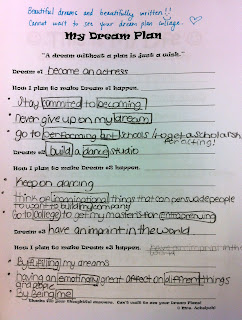 Beautiful dreams and beautifully written!!
Cannot wait to see your dream plan collage.
My Dream Plan
"A dream without a plan is just a wish."
Dream #1 become an actress
How I plan to make Dream #1 happen.
Stay commited to becoming.
Never give up on my dream
go to performing art schools & to get a scholarship
for acting!
Dream #2 build a dance studio
How I plan to make Dream #2 happen.
Keep on dancing
Think of imaginational things that can persuade people
to want to build my company
Go to College to get my masters for
Dream #3 have an impact in the world
How I plan to make Dream #3 happen.
By fulfilling my dreams
having an emotionally great affect on different things
and people
By Being me!
Thanks for your thoughtful answers. Can't wait to see your Dream Plans!